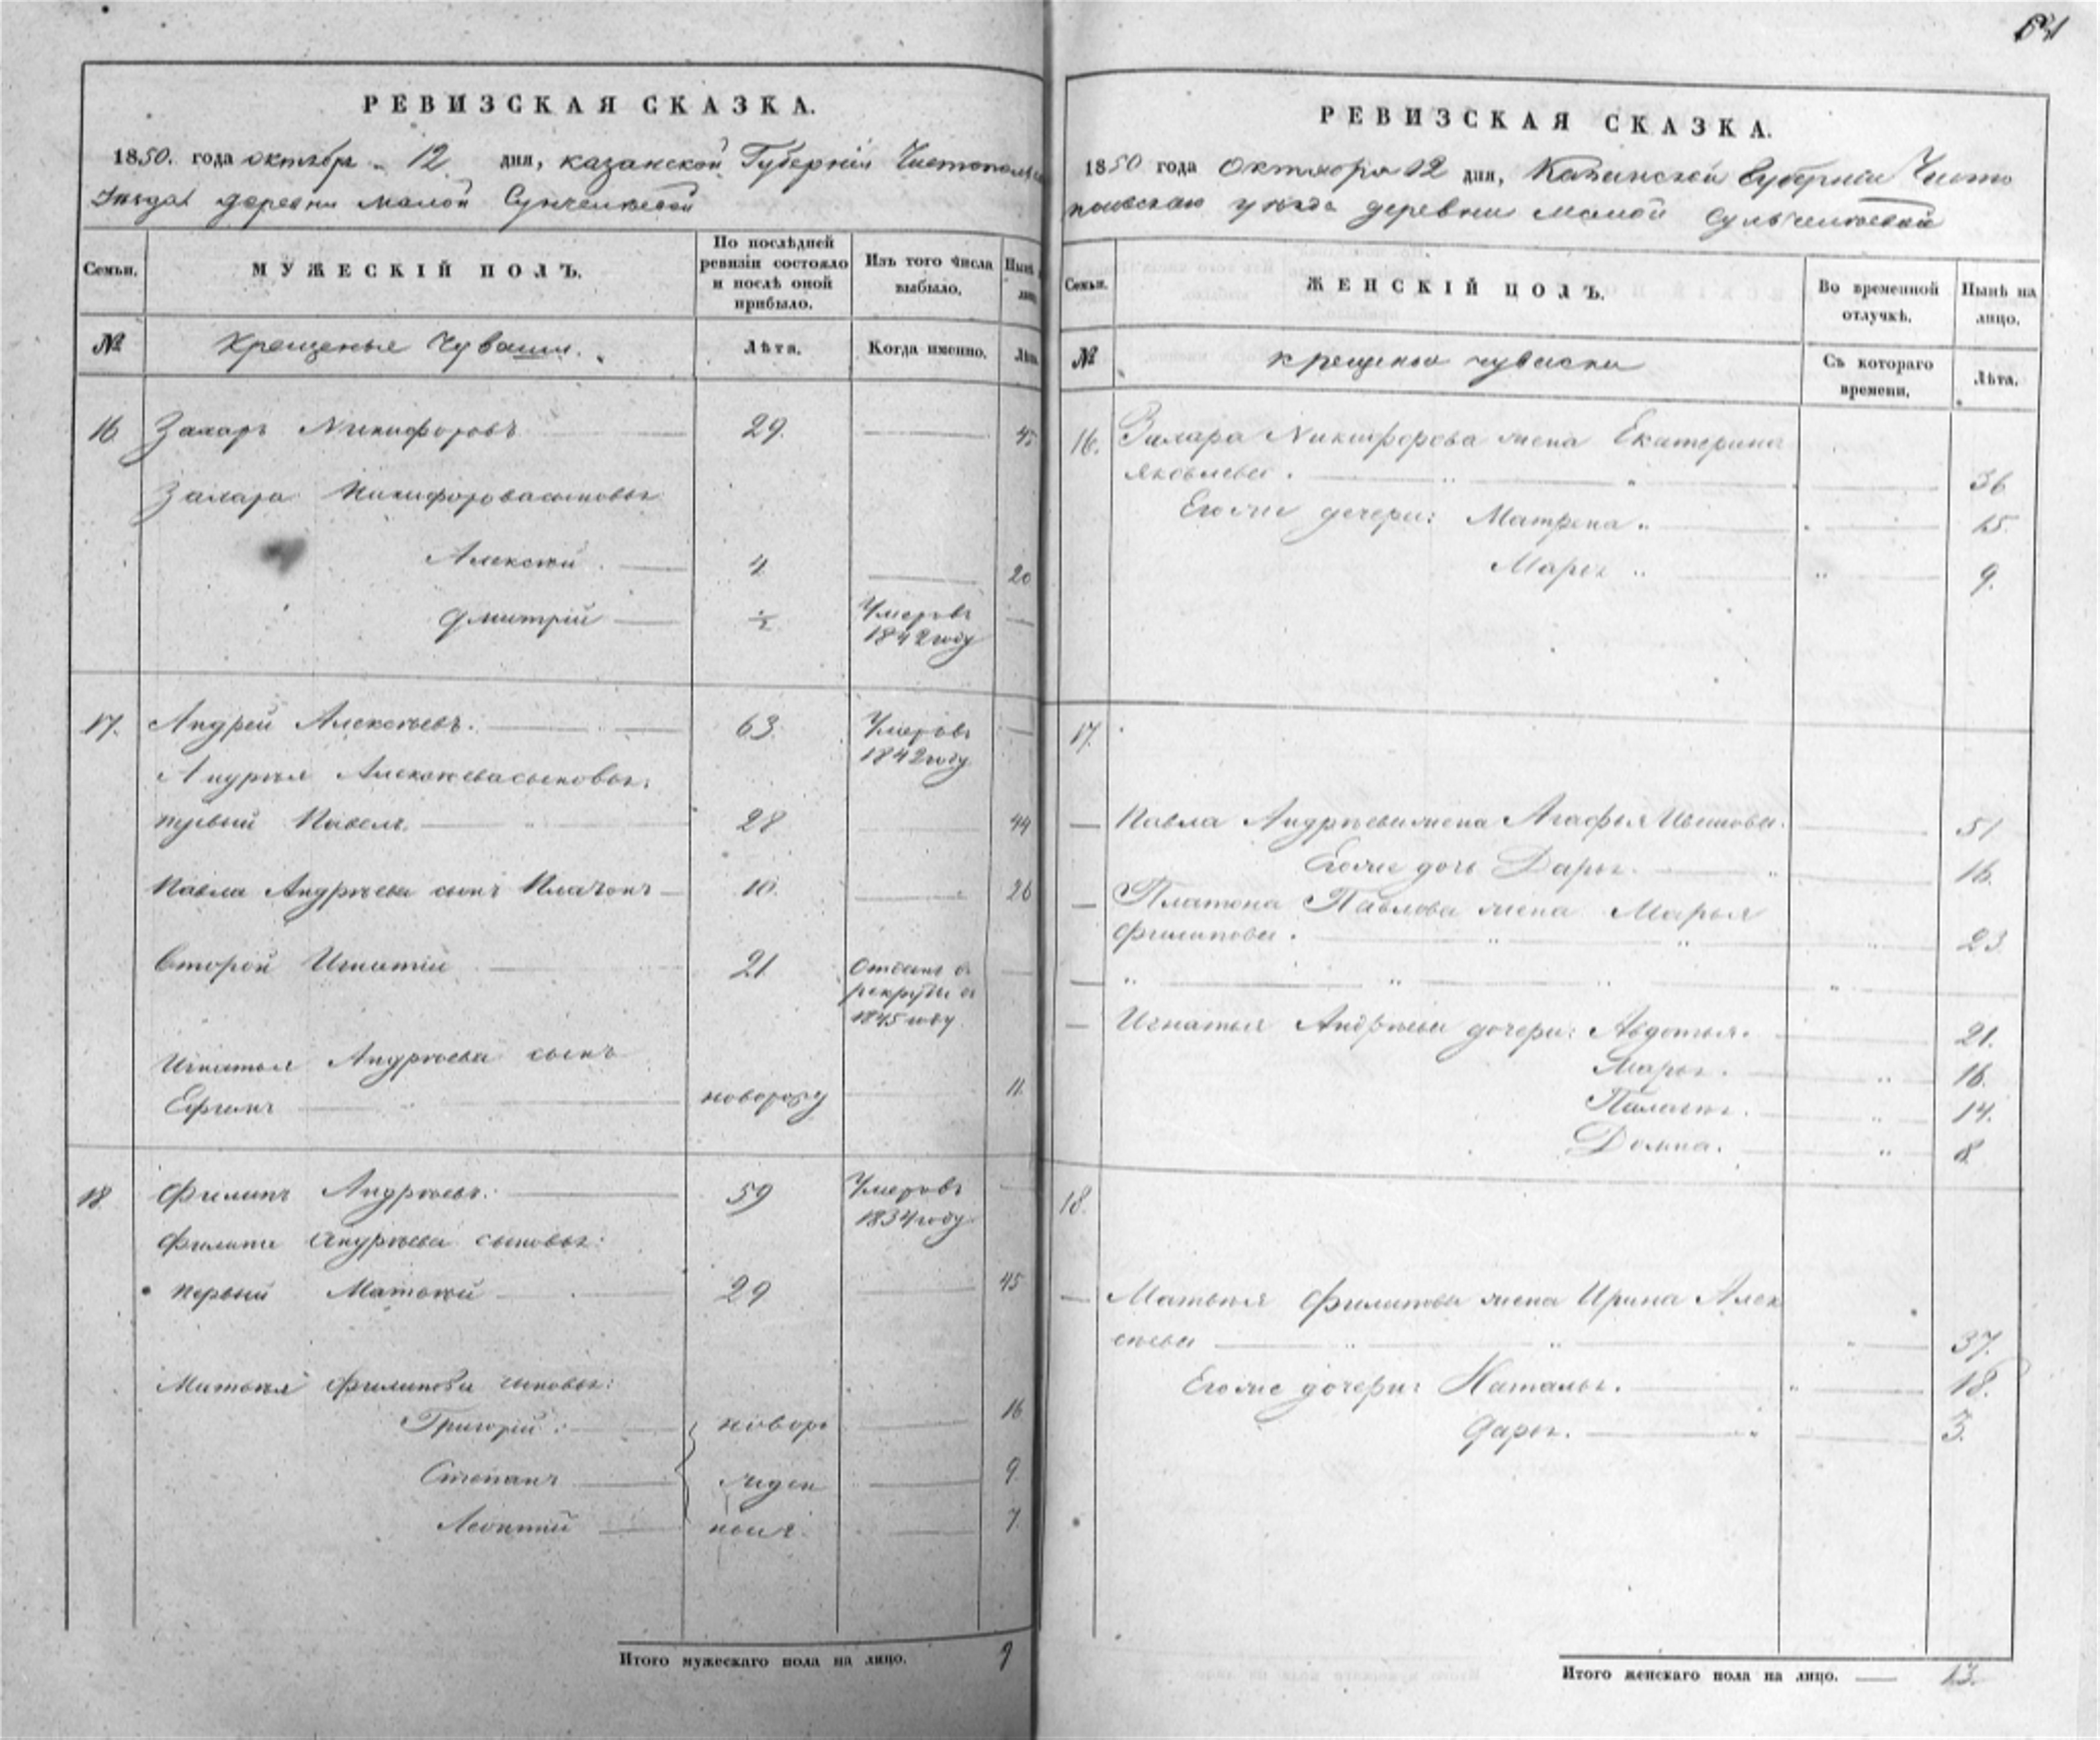 64
РЕВИЗСКАЯ СКАЗКА.
1850. года октября 12 дня, казанской Губернiи Чистопольс
Уѣзда деревни малой Сунчелеевой
Семьи.
МУЖЕСКIЙ ПОЛЪ.
По послѣдней ревизiи состояло и послѣ оной прибыло.
Изъ того числа выбыло.
Нынѣ
лицо
№
Крещеные Чуваши.
Лѣта.
Когда именно.
Лѣта
16 Захаръ Никифоровъ 29. 45
Захара Никифорова сыновья
Алексѣй 4 20
Дмитрiй ½ Умеръ въ
1842 году
17. Андрей Алексѣевъ. 63. Умеръ въ
1842 году
Андрея Алексѣева сыновья:
первый Павелъ. 28 44
Павла Андрѣева сынъ Платонъ 10. 26
Второй Игнатiй 21 Отданъ въ
рекруты въ
1845 году
Игнатья Андрѣева сынъ
Ефимъ новорожд 11.
18. Филипъ Андрѣевъ. 59 Умеръ въ
1834 году
Филипа Андрѣева сыновья:
первый Матвѣй 29 45
Матвѣя Филипова сыновья:
Григорiй: новоро 16
Степанъ жден 9.
Леонтiй ныя. 7.
Итого мужескаго пола на лицо. 9
РЕВИЗСКАЯ СКАЗКА.
1850 года Октября 12 дня, Казанской Губернiи Чисто
польскаго уѣзда деревни малой Сульчелеевой
Семьи.
ЖЕНСКIЙ ПОЛЪ.
Во временной отлучкѣ.
Нынѣ на лицо.
№
крещеныя чувашки
Съ котораго времени.
Лѣта.
16. Захара Никифорова жена Екатерина
Яковлева. 36
Его же дочери: Матрена. 15.
Марья 9.
17.
Павла Андрѣева жена Агафья Иванова. 51
Его же дочь Дарья. 16.
Платона Павлова жена Марья
Филипова. 23
Игнатья Андрѣева дочери: Авдотья. 21.
Марья. 16.
Палагея. 14.
Домна. 8
18.
Матвѣя Филипова жена Ирина Алек
сѣева 37.
Его же дочери: Наталья. 18.
Дарья. 3.
Итого женскаго пола на лицо. 13.